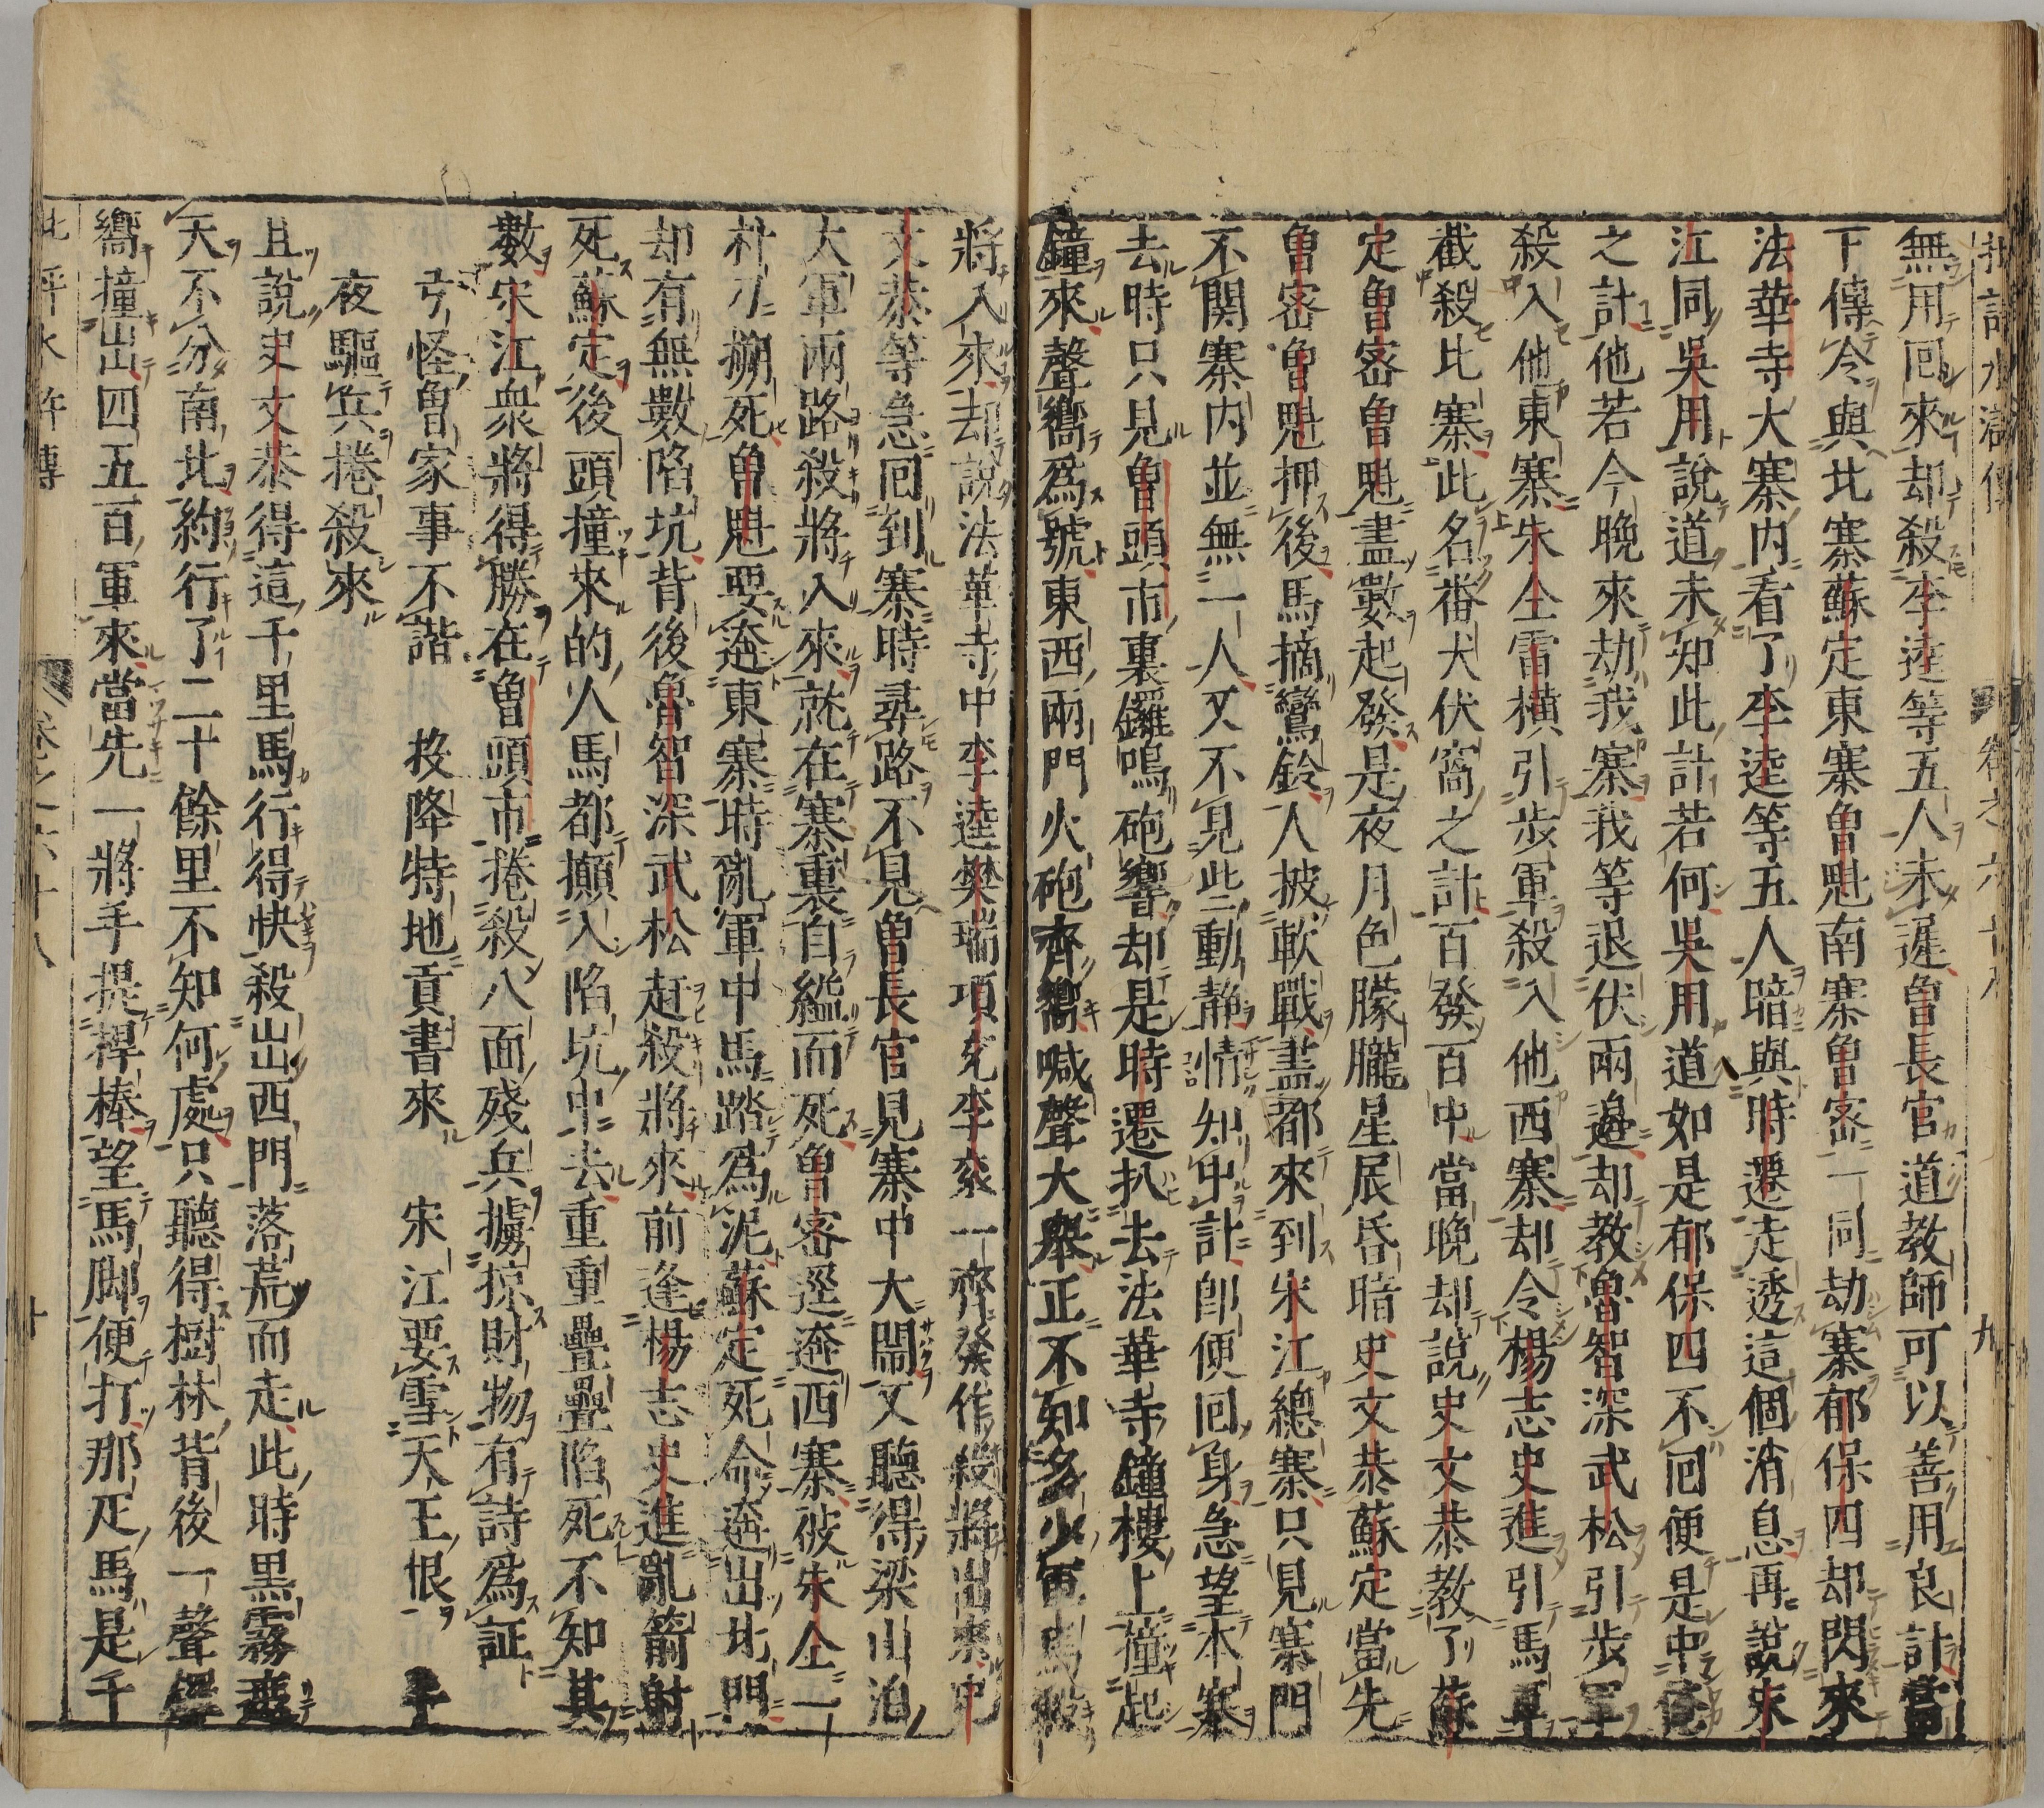 批評水滸傳 卷之六十八 九
無用回來却殺李逵等五人未遲曾長官道教師可以善用良計當
下傳令與北寨蘇定東寨曾魁南寨曾密一同劫寨郁保四却閃來
法華寺大寨內看了李逵等五人暗與時遷走透這個消息再說宋
江同吳用說道未知此計若何吳用道如是郁保四不回便是中俺
之計他若今晚來劫我寨我等退伏兩邊却教魯智深武松引步軍
殺入他東寨朱仝雷橫引步軍殺入他西寨却令楊志史進引馬軍
截殺北寨此名番犬伏窩之計百發百中當晚却說史文恭教了蘇
定曾密曾魁盡數起發是夜月色朦朧星辰昏暗史文恭蘇定當先
曾密曾魁押後馬摘鸞鈴人披軟戰盡都來到宋江總寨只見寨門
不関寨内並無一人又不見些動静情知中計即便回身急望本寨
去時只見曾頭市裏鑼鳴砲響却是時遷扒去法華寺鐘樓上撞起
鐘來聲嚮爲號東西兩門火砲齊嚮喊聲大舉正不知多少軍馬殺
將入來却說法華寺中李逵樊瑞項充李衮一齊發作殺將出來史
文恭等急回到寨時尋路不見曾長官見寨中大鬧又聽得梁山泊
大軍兩路殺將入來就在寨裏自縊而死曾密逕遶西寨被朱仝一
朴刀搠死曾魁要遶東寨時亂軍中馬踏爲泥蘇定死命遶出北門
却有無數陷坑背後魯智深武松赶殺將來前逢楊志史進亂箭射
死蘇定後頭撞來的人馬都攧入陷坑中去重重疊疊陷死不知其
數宋江衆將得勝在曾頭市捲殺八面殘兵擄掠財物有詩爲証
可怪曾家事不諧 投降特地貢書來 宋江要雪天王恨 半
夜驅兵捲殺來
且說史文恭得這千里馬行得快殺出西門落荒而走此時黑霧遮
天不分南北約行了二十餘里不知何處只聽得樹林背後一聲鑼
嚮撞出四五百軍來當先一將手提桿棒望馬脚便打那疋馬是千
批評水滸傳 卷之六十八 十